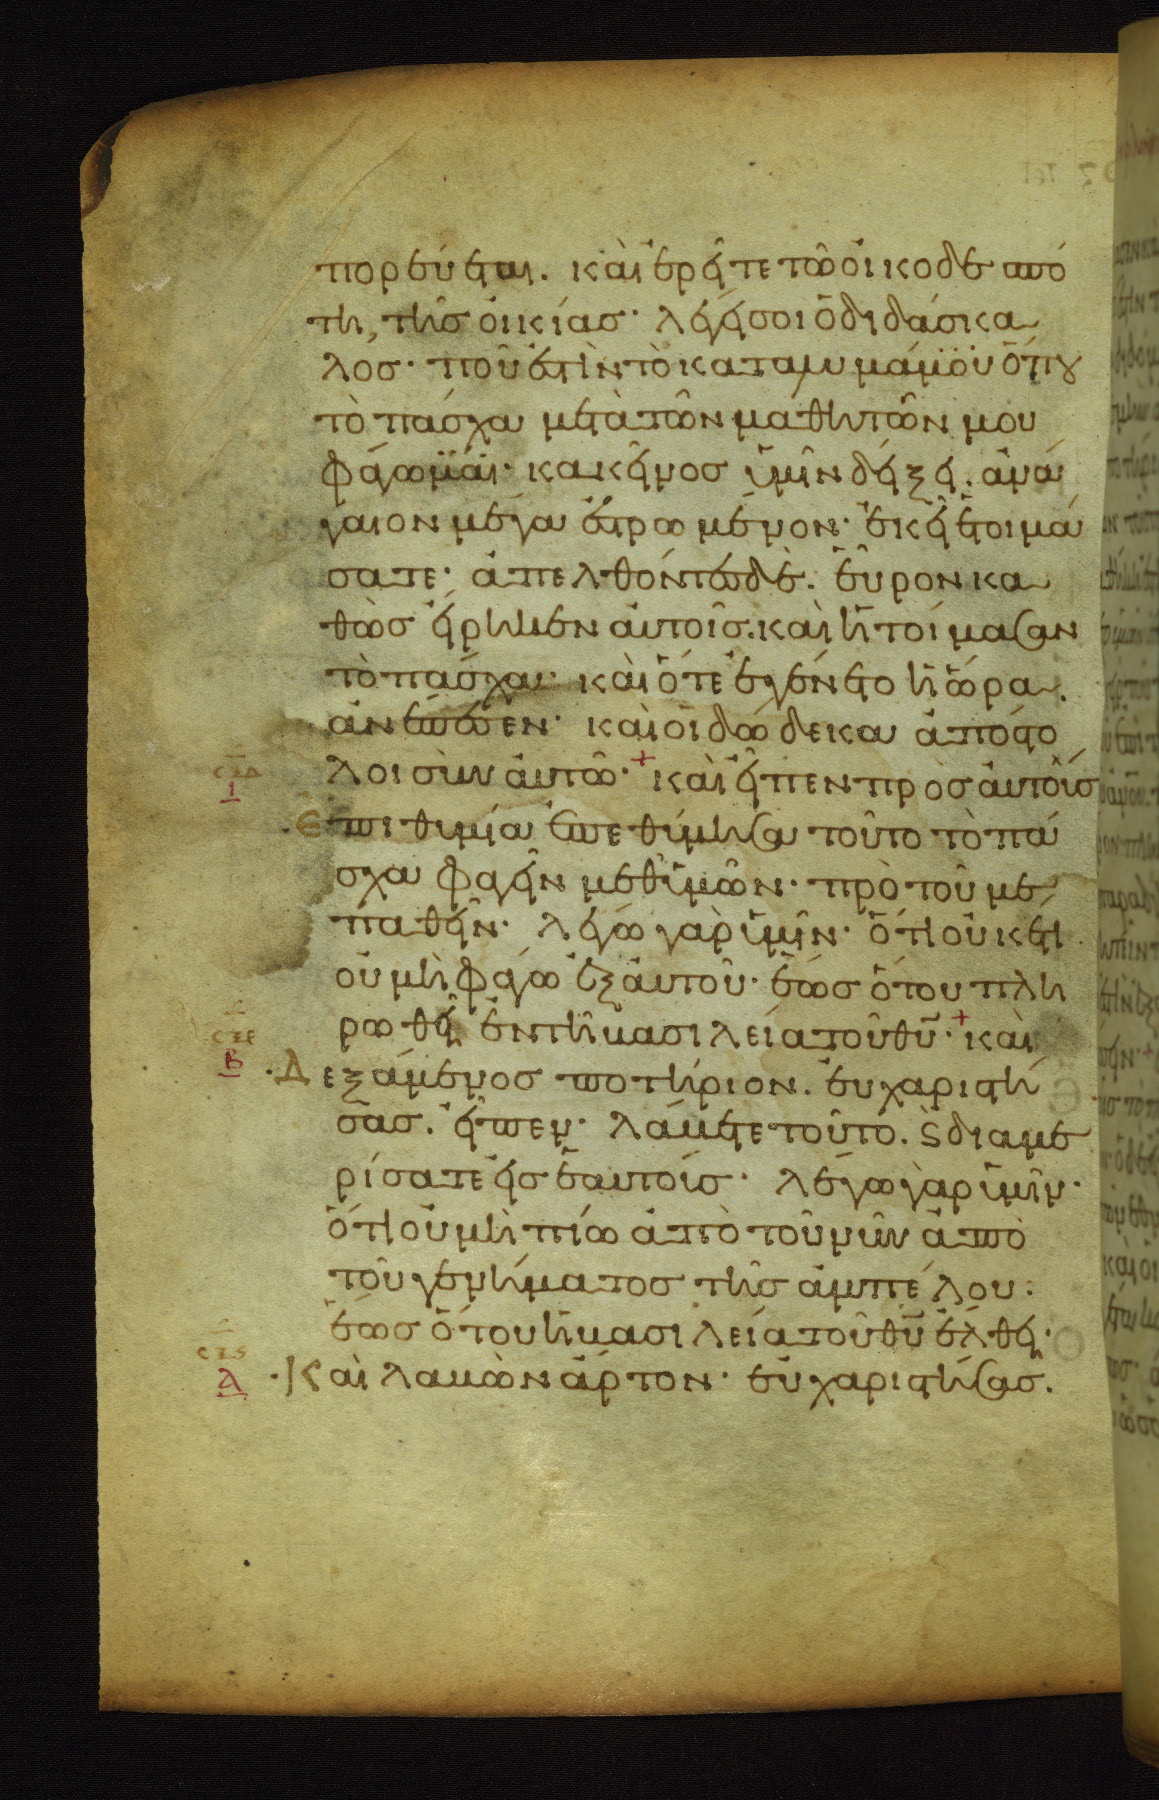 πορεύεται. καὶ ἐρεῖτε τῶ οἰκοδεσπό
τη, τῆς οἰκίας· λέγει σοι ὁ διδάσκα
λος· ποῦ ἐστὶν τὸ κατάλυμά μου ὅπου
τὸ πάσχα μετὰ τῶν μαθητῶν μου
φάγωμαι· κακεῖνος ὑμῖν δείξει. ἀνά
γαιον μέγα ἐστρωμένον· ἐκεῖ ἑτοιμά
σατε· ἀπελθόντες δὲ. εὗρον κα
θὼς εἴρηκεν αὐτοῖς. καὶ ἡτοίμασαν
τὸ πάσχα· καὶ ὅτε ἐγένετο ἡ ὥρα.
ἀνέπεσεν· καὶ οἱ δώδεκα ἀπόστο
λοι σὺν αὐτῶ· + καὶ εἶπεν πρὸς αὐτοὺς
σξδ
ι
Επιθυμία ἐπεθύμησα τοῦτο τὸ πά
σχα φαγεῖν μεθ ὑμῶν· πρὸ τοῦ με
παθεῖν· λέγω γὰρ ὑμῖν· ὅτι οὐκέτι
οὐ μὴ φάγω ἐξ αὐτοῦ· ἕως ὅτου πλη
ρωθῆ ἐν τῆ βασιλεία τοῦ θυ· + καὶ
σξε
β
Δεξάμενος ποτήριον. εὐχαριστή
σας. εἶπεν· λάβετε τοῦτο. ϛ διαμε
ρίσατε εἰς ἑαυτοίς· λέγω γὰρ ὑμῖν·
ὅτι οὐ μὴ πίω ἀπὸ τοῦ νῦν ἀπὸ
τοῦ γενήματος τῆς ἀμπέλου·
ἕως ὅτου ἡ βασιλεία τοῦ θυ ἔλθη·
σξϛ
α
Καὶ λαβὼν ἄρτον· εὐχαριστήσας.